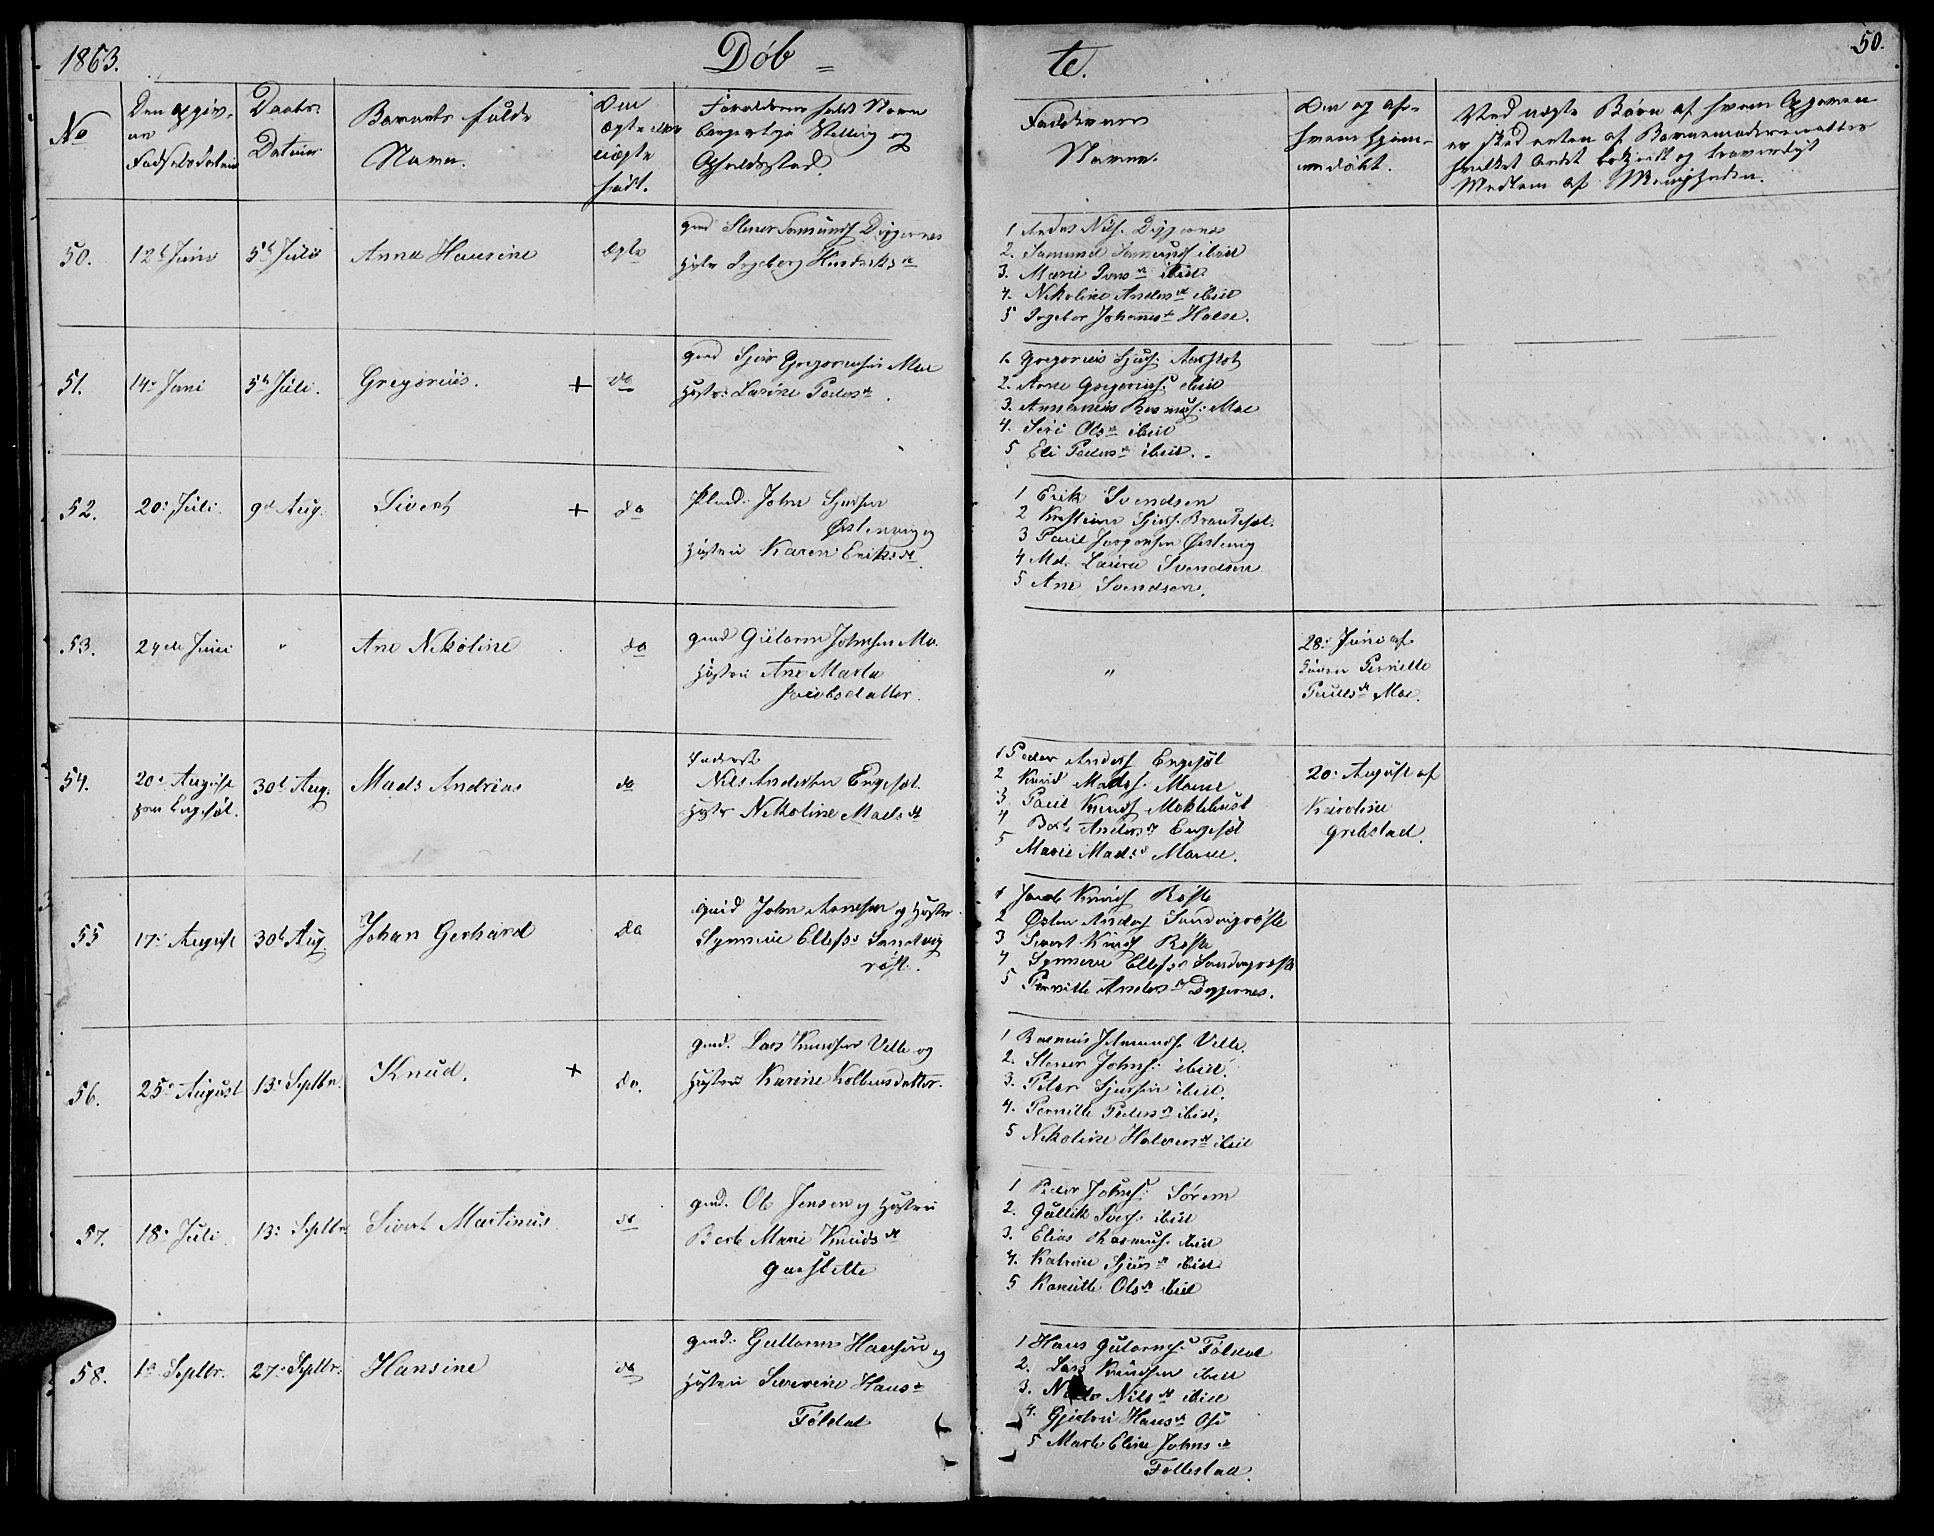 1863.
Døb = te.
50.
No
Den opgivne Fødselsdatum
Daabs-Datum
Barnets fulde Navn.
Om ægte eller uægte født.
Forældrenes fulde Navn borgerlige Stilling og Opholdssted.
Faddernes Navne.
Om og af hvem hjemmedøbt.
Ved uægte Børn af hvem Opgaven
er skeet enten af Barnemoderen eller
hvilket andet bekjendt og troværdigt
Medlem af Menigheden.
50.
12te Juni
5te Julii
Anna Hansine
ægte
gmd Stener Samunds Digernes
Hustr Ingeborg Hendriksdt
1 Andes Nils. Digernes
2. Samund Samunds ibid
3. Marie Ivarsdt ibid
4. Nikoline Andersdt ibid
5 Ingebor Johannesdt Halse.
51.
14. Juni
5te Juli.
Gregorius.
+
do
gmd Sjur Gregoriussen Moe
Hustr: Larine Pedersdt.
1. Gregorius Sjurs: Aarflot
2. Arne Gregorius. ibid
3. Annanias Rasmus: Moe
4. Siri Olsdt ibid
5 Eli Pedersdt ibid.
52.
20. Juli.
9de Aug.
Sivert
+
do
Plads. John Sjursen
Østenvig og
Hustru Karen Eriksdt.
1 Erik Svendsen
2 Kristian Sjurs. Brauteset.
3 Paul Jørgensen Østenvig
4 Md. Laura Svendsen
5 Ane Svendsen.
53.
24de Juni
"
Ane Nikoline
do
gmd Guttorm Johnsen Mo.
Hustru Ane Marta
Jacobsdatter.
"
28. Juni af
Pernille
Paulsdt Moe.
54.
20. August
paa Engeset.
30te Aug.
Mads Andrias
do
Nils Andersen Engeset.
Hustr Nikoline Madsdt
1 Peder Anders Engeset
2 Knud Mads. Maue
3. Paul Knuds Moklebust
4 Berte Andersdt Engeset
5 Marie Madsdt Maue.
20. August af
Karoline
Grebstad.
55
17. August
30te Aug
Johan Gerhard
do
gmd John Arnesen og Hustr
Synneve Ellefsdt Sandvig
røst.
1 Jacob Knuds Røste
2 Østen Anders Sandvigrøste
3 Sivert Knuds Røste
4 Synneve Ellefsdt Sandvigrøste
5 Pernille Andersdt Digernes.
56.
25. August
13. Septbr.
Knud.
+
do.
gmd. Lars Knudsen Velle og
Hustru Karine Kolbensdatter.
1 Rasmus Johannes. Velle.
2. Stener Johns: ibid.
3. Peter Sjursen ibid.
4. Pernille Pedersdt ibid.
5 Nikoline Halvorsdt ibid
57.
18. Juli.
13. Septbr.
Sivert Martinus
do
gmd. Ole Jensen og Hustru
Berte Marie Knudsdt
1 Peder Johns: Sørem
2. Gullik Ivers: ibid
3. Elias Rasmus. ibid
4. Katrine Sjursdt ibid
5 Kanutte Olsdt ibid
58.
1ste Septbr.
27. Septbr:
Hansine
do
gmd: Guttorm Hansen og
Hustru Severine Hansdt
Følstad
1 Hans Gutorms: Følstad
2. Lars Knudsen ibid
3. Nilsdt ibid
4. Gjertrud Hansdt Ose
5 Marte Eline Johnsdt
Follestad.